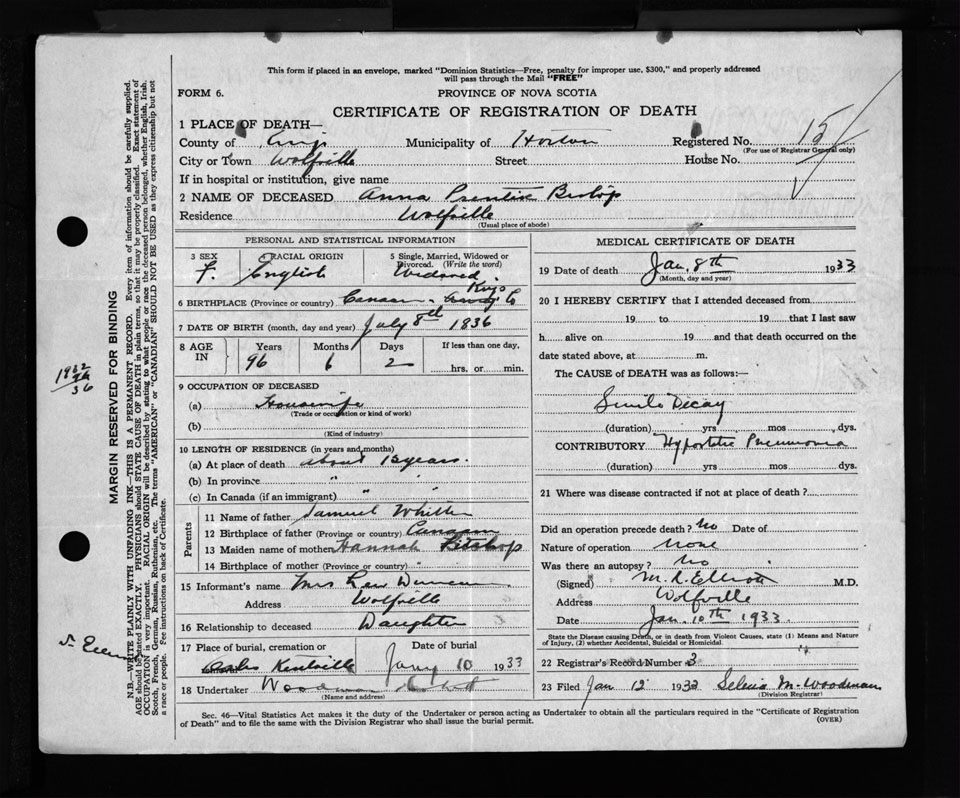 This form if placed in an envelope, marked "Dominion Statistics—Free, penalty for improper use, $300," and properly addressed
will pass through the Mail "FREE"
FORM 6.
PROVINCE OF NOVA SCOTIA
CERTIFICATE OF REGISTRATION OF DEATH
1 PLACE OF DEATH—
County of Kings Municipality of Horton Registered No. 15
(For use of Registrar General only)
City or Town Wolfville Street House No.
If in hospital or institution, give name
2 NAME OF DECEASED Anna Prentiss Bishop
Residence Wolfville
(Usual place of abode)
PERSONAL AND STATISTICAL INFORMATION
3 SEX RACIAL ORIGIN 5 Single, Married, Widowed or
Divorced. (Write the word)
F. English Widowed
6 BIRTHPLACE (Province or country) Canaan Kings Co
7 DATE OF BIRTH (month, day and year) July 8th 1836
8 AGE IN Years Months Days If less than one day,
96 6 2 hrs. or min.
9 OCCUPATION OF DECEASED
(a) Housewife
(Trade or occupation or kind of work)
(b)
(Kind of industry)
10 LENGTH OF RESIDENCE (in years and months)
(a) At place of death about 15 years.
(b) In province "
(c) In Canada (if an immigrant) " "
Parents
11 Name of father Samuel
12 Birthplace of father (Province or country) Canaan
13 Maiden name of mother Hannah Bishop
14 Birthplace of mother (Province or country) "
15 Informant's name Mrs Duncan
Address Wolfville
16 Relationship to deceased Daughter
17 Place of burial, cremation or Date of burial
Kentville Jany 10 1933
18 Undertaker
(Name and address)
MEDICAL CERTIFICATE OF DEATH
19 Date of death Jan. 8th 1933
(Month, day and year)
20 I HEREBY CERTIFY that I attended deceased from
19 to 19 that I last saw
h alive on 19 and that death occurred on the
date stated above, at m.
The CAUSE of DEATH was as follows:—
Senile Decay
(duration) yrs mos dys.
CONTRIBUTORY Hypostatic Pneumonia
(duration) yrs mos dys.
21 Where was disease contracted if not at place of death?
Did an operation precede death? No Date of
Nature of operation None
Was there an autopsy? No
(Signed) M. R. Elliott M.D.
Address Wolfville
Date Jan. 10th 1933.
State the Disease causing Death, or in death from Violent Causes, state (1) Means and Nature
of Injury, (2) whether Accidental, Suicidal or Homicidal.
22 Registrar's Record Number 3
23 Filed Jan 12 1933 M. Woodman
(Division Registrar)
Sec. 46—Vital Statistics Act makes it the duty of the Undertaker or person acting as Undertaker to obtain all the particulars required in the "Certificate of Registration
of Death" and to file the same with the Division Registrar who shall issue the burial permit.
(OVER)
MARGIN RESERVED FOR BINDING
N.B.—WRITE PLAINLY WITH UNFADING INK—THIS IS A PERMANENT RECORD. Every item of information should be carefully supplied.
AGE should be stated EXACTLY. PHYSICIANS should STATE CAUSE OF DEATH in plain terms, so that it may be properly classified. Exact statement of
OCCUPATION is very important. RACIAL ORIGIN will be described by stating to what people or race the deceased person belonged, whether English, Irish,
Scotch, French, German, Russian, Ruthenian, etc. The terms "AMERICAN" or "CANADIAN" SHOULD NOT BE USED as they express citizenship but not
a race or people. See instructions on back of Certificate.
1932
96
36